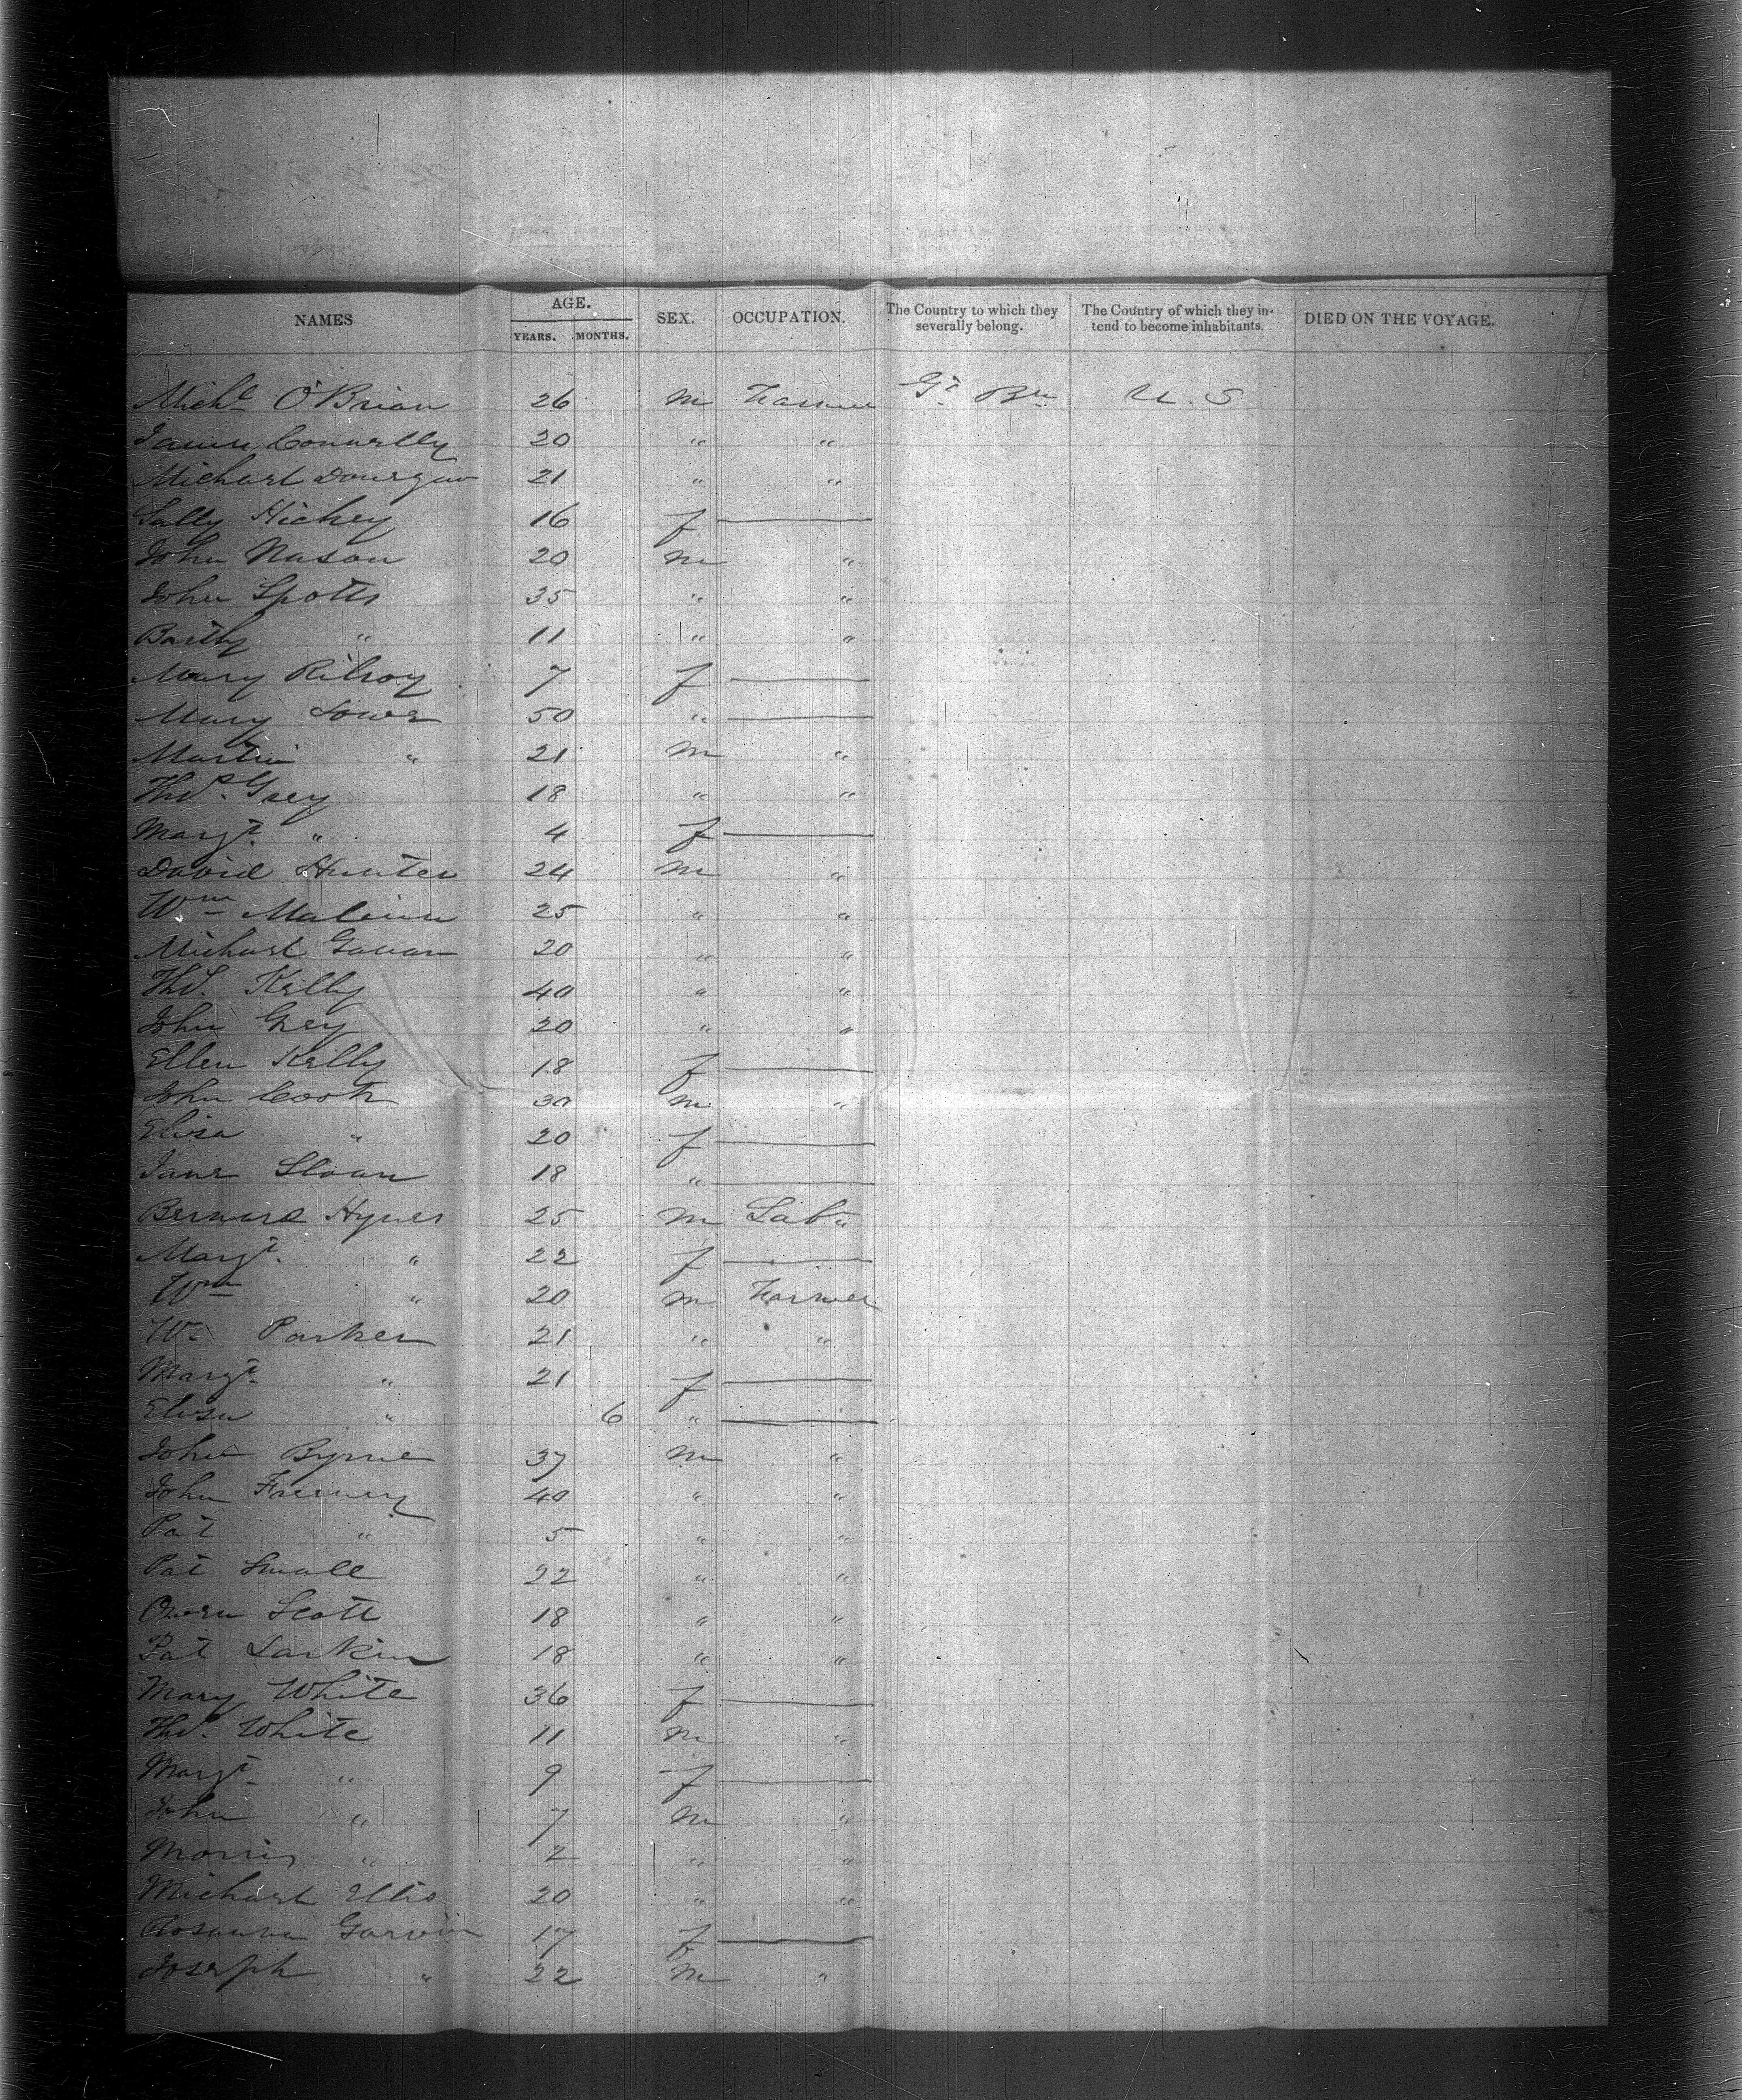 NAMES AGE. YEARS. MONTHS. SEX. OCCUPATION. The Country to which they severally belong. The Country of which they intend to become inhabitants. DIED ON THE VOYAGE.
Michl O'Brian 26 m Farmer Gt. Bn U.S
James Connelly 20 " "
Michael 21 " "
Sally Hickey 16 f
John Nason 20 m "
John Spotts 35 " "
Barthy " 11 " "
Mary Kilroy 7 f
Mary 50 "
Martin " 21 m "
Thos. Grey 18 " "
Margt. " 4 f
David Hunter 24 m "
Wm 25 " "
Michael Gavan 20 " "
Thos. Kelly 40 " "
John Grey 20 " "
Ellen Kelly 18 f
John Cook 30 m "
Eliza " 20 f
Jane Sloan 18 "
Bernard Hynes 25 m Labr
Margt. " 22 f
Wm " 20 m Farmer
Wm Parker 21 " "
Margt. " 21 f
Eliza " 6 "
John Byrne 37 m "
John 40 " "
Pat " 5 " "
Pat Small 22 " "
Owen Scott 18 " "
Pat Larkin 18 " "
Mary White 36 f
Thos. White 11 m "
Margt. " 9 f
John " 7 m "
Morris " 2 " "
Michael Ellis 20 " "
Rosanna Garvin 17 f
Joseph " 22 m "